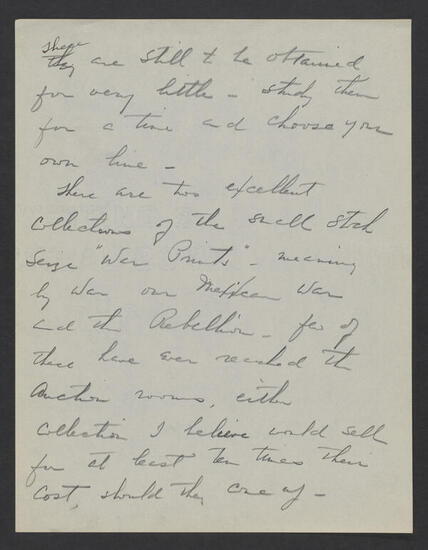 These
they are still to be obtained
for very little – study them
for a time and choose your
own line –
There are two excellent
collections of the small stock
size "War Prints" – meaning
by War our Mexican War
and the Rebellion – few of
these have ever reached the
Auction rooms, either
collection I believe would sell
for at least ten times their
cost, should they come up –